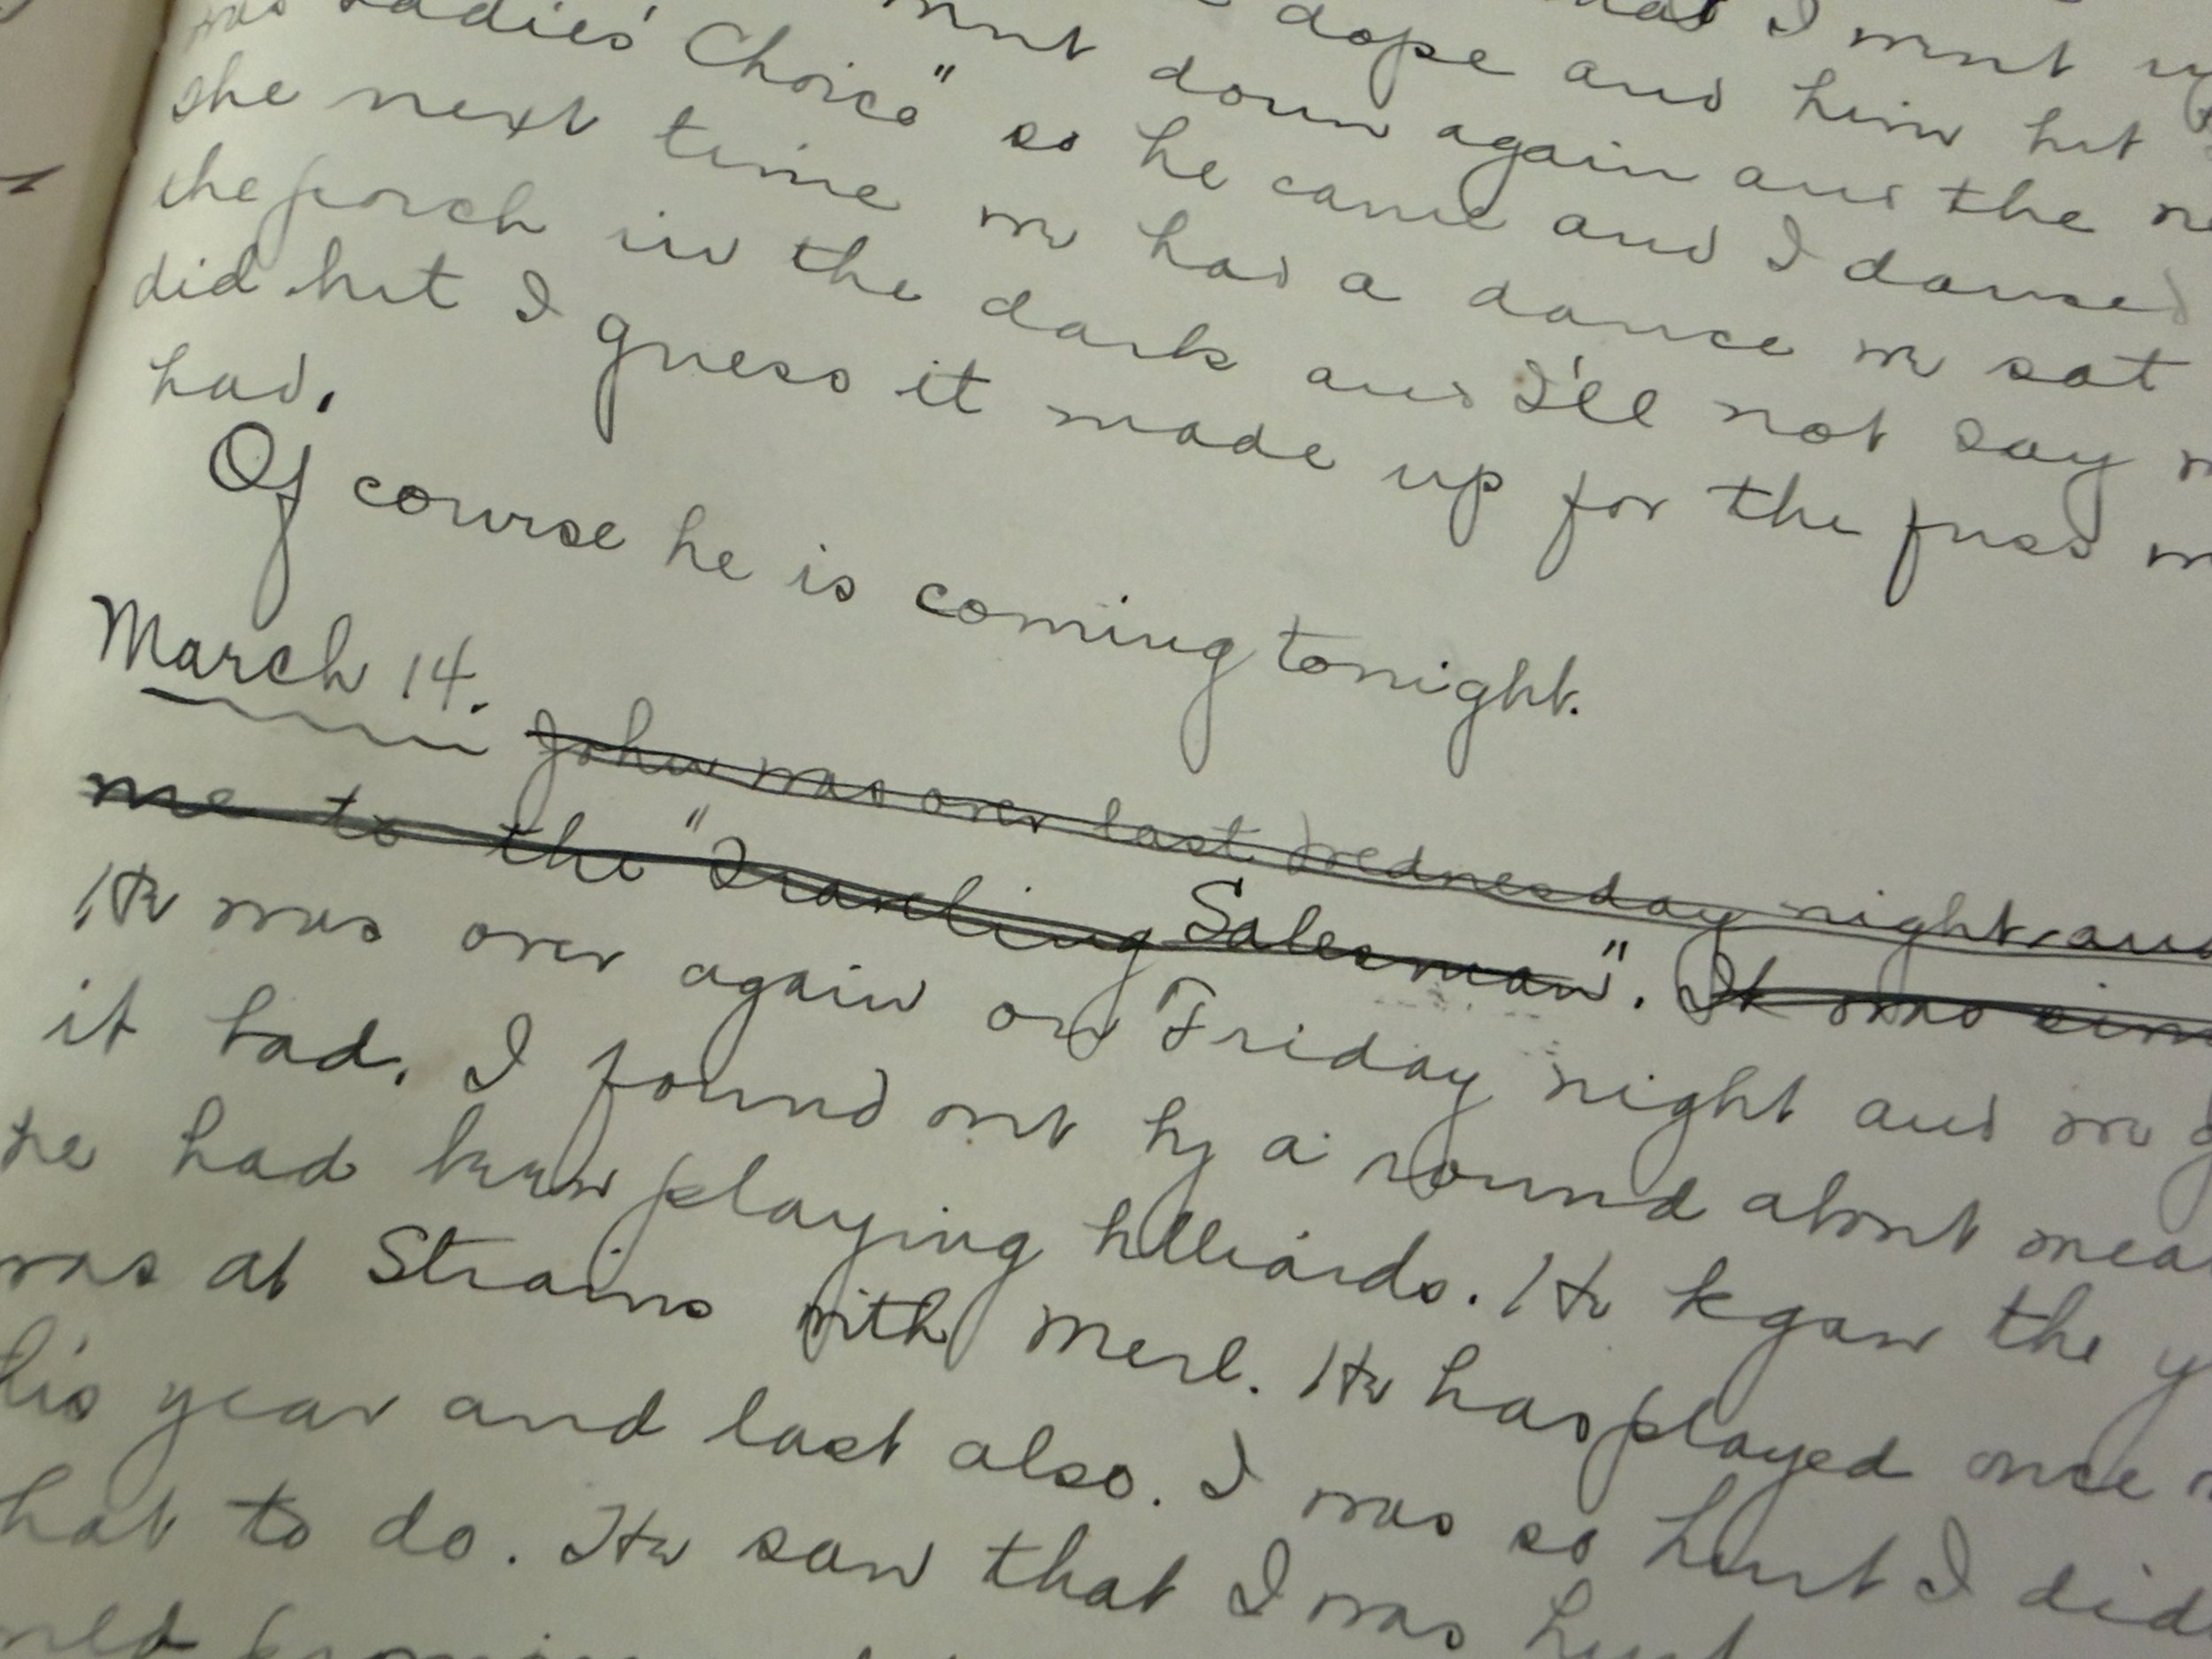 that I went
went dope and him but
was Ladies' Choice" went down again and the
the next time so he came and I danced
the porch in the dark we had a dance we sat
did but I guess it made up and I'll not say
had. for the fuss we
Of course he is coming tonight.
March 14. John was over last Wednesday night and
me to the "Traveling Salesman". It was
He was over again on Friday night and we
it bad. I found out by a round about
he had been playing billiards. He the
was at Strains with Merl. He has played once
year and last also. I was so hurt I
to do. He saw that I was hurt